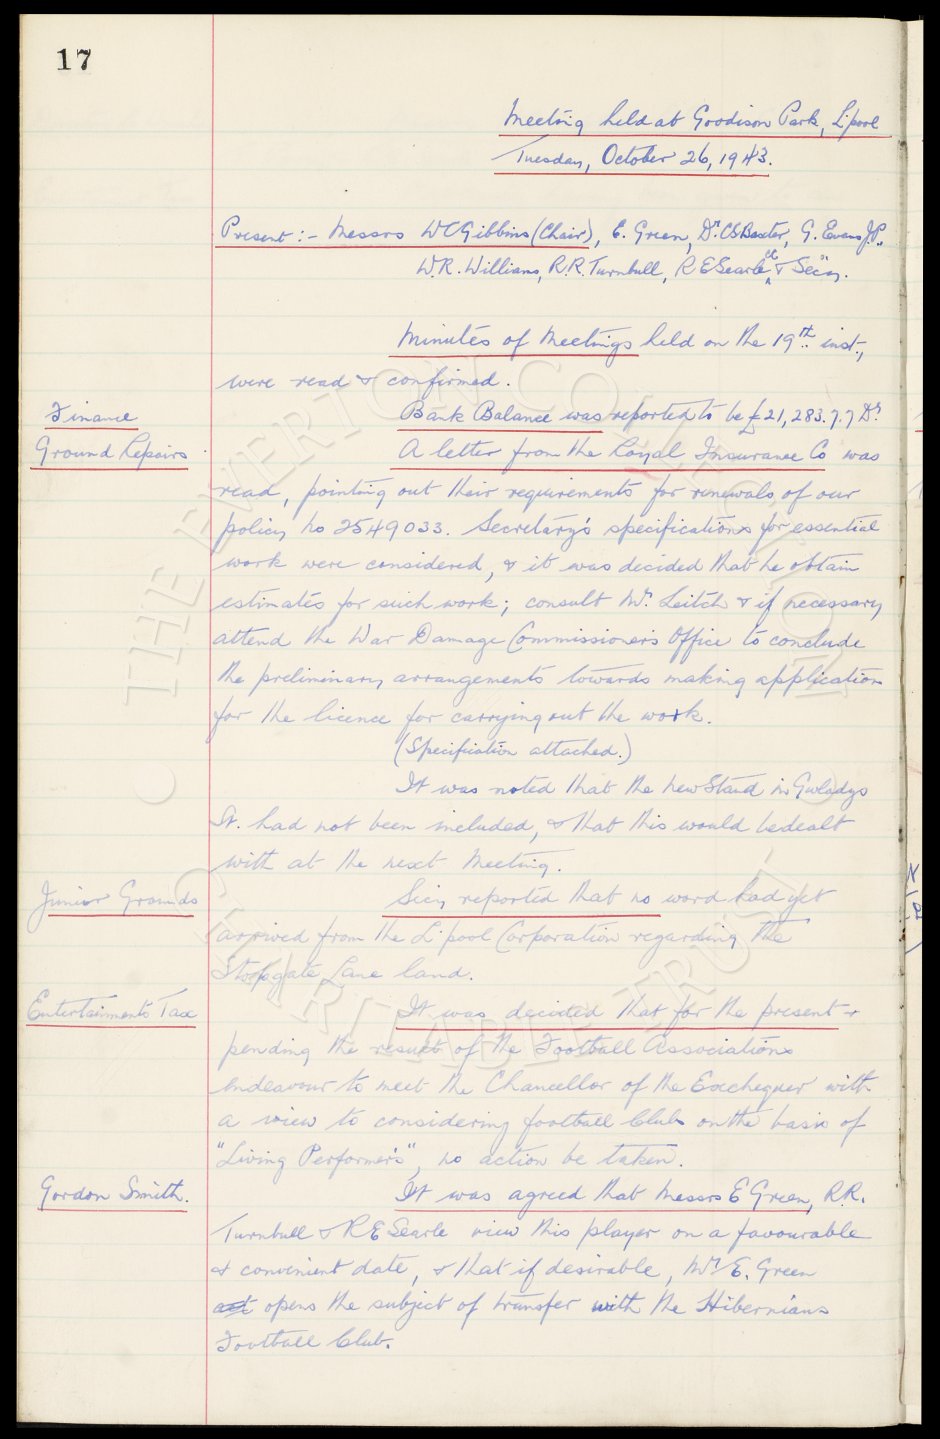 17
Meeting held at Goodison Park, L'pool
Tuesday, October 26, 1943.
Present :- Messrs W C Gibbins (Chair), E. Green, Dr. C S Baxter, G. Evans J.P.,
W.R. Williams, R.R. Turnbull, R E Searle & Sec'y.
Minutes of Meetings held on the 19th inst.,
were read & confirmed.
Finance
Bank Balance was reported to be £21,283.7.7 Dr
Ground Repairs
A letter from the Royal Insurance Co was
read, pointing out their requirements for renewals of our
policy no 2549033. Secretary's specifications for essential
work were considered, & it was decided that he obtain
estimates for such work; consult Mr. Leitch & if necessary
attend the War Damage Commissioner's Office to conclude
the preliminary arrangements towards making application
for the licence for carrying out the work.
(Specification attached.)
It was noted that the new Stand in Gwladys
St. had not been included, & that this would be dealt
with at the next Meeting.
Junior Grounds
Sec'y reported that no word had yet
arrived from the L'pool Corporation regarding the
Stopgate Lane land.
Entertainments Tax
It was decided that for the present &
pending the result of the Football Associations
endeavour to meet the Chancellor of the Exchequer with
a view to considering football Clubs on the basis of
"Living Performers", no action be taken.
Gordon Smith.
It was agreed that Messrs E Green, R.R.
Turnbull & R E Searle view this player on a favourable
& convenient date, & that if desirable, Mr E. Green
opens the subject of transfer with the Hibernians
Football Club.
THE EVERTON COLLECTION
CHARITABLE TRUST